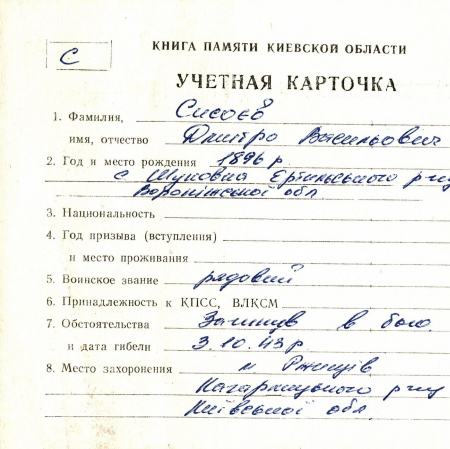 С
КНИГА ПАМЯТИ КИЕВСКОЙ ОБЛАСТИ
УЧЕТНАЯ КАРТОЧКА
1. Фамилия, Сисоєв
имя, отчество Дмитро Васильович
2. Год и место рождения 1896 р
с Ертильського р-ну
Воронізької обл
3. Национальность
4. Год призыва (вступления)
и место проживания
5. Воинское звание рядовий
6. Принадлежность к КПСС, ВЛКСМ
7. Обстоятельства Загинув в бою.
и дата гибели 3.10.43 р.
8. Место захоронения м Ржищів
Кагарлицького р-ну
Київської обл.